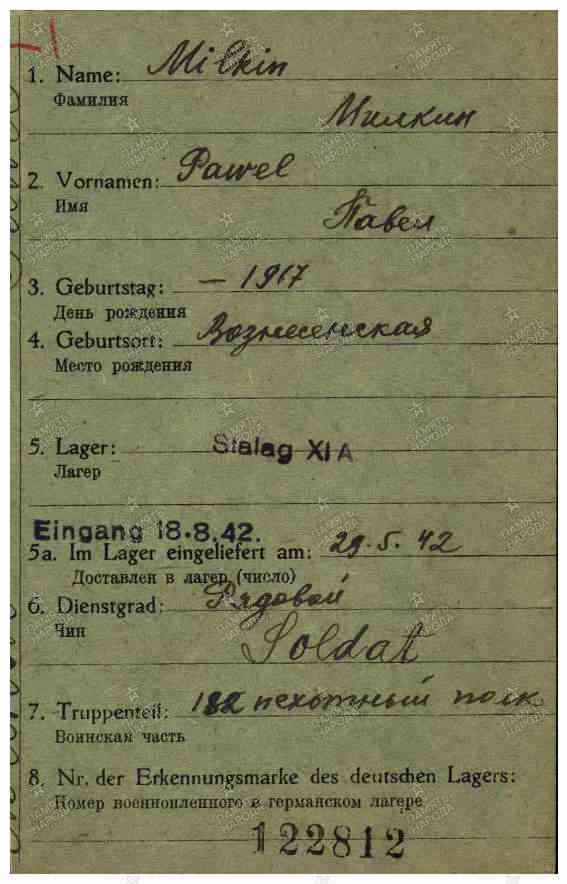 1. Name: Milkin
Фамилия
Милкин
2. Vornamen: Pawel
Имя
Павел
3. Geburtstag: — 1917
День рождения
4. Geburtsort: Вознесенская
Место рождения
5. Lager: Stalag XI A
Лагер
Eingang 18.8.42.
5a. Im Lager eingeliefert am: 29.5.42
Доставлен в лагер (число)
6. Dienstgrad: Рядовой
Чин
Soldat
7. Truppenteil: 182 пехотный полк
Воинская часть
8. Nr. der Erkennungsmarke des deutschen Lagers:
Номер военнопленного в германском лагере
122812